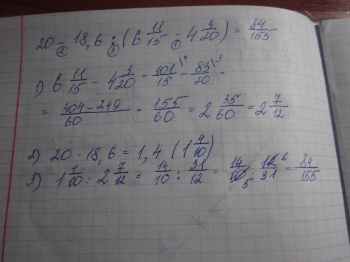 20 - 18,6 : (6 11/15 - 4 3/20) = 84/155
1) 6 11/15 - 4 3/20 = 101/15 - 83/20 =
= 404 - 249/60 = 155/60 = 2 35/60 = 2 7/12
2) 20 - 18,6 = 1,4 (1 4/10)
3) 1 4/10 : 2 7/12 = 14/10 : 31/12 = 14/10 5 · 12 6/31 = 84/155